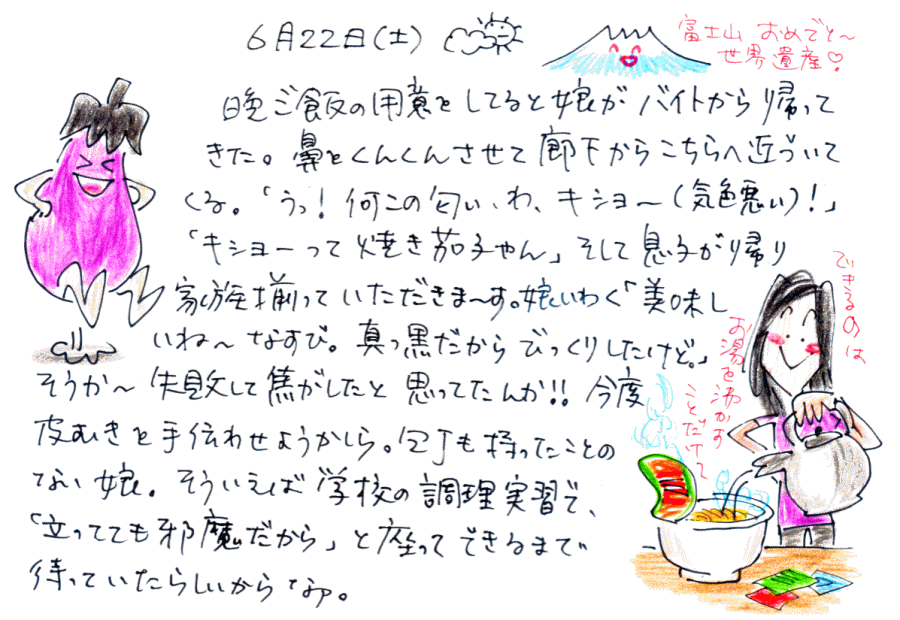 6月22日(土)
富士山 おめでと〜
世界遺産♡!
晩ご飯の用意をしてると娘がバイトから帰って
きた。鼻をくんくんさせて廊下からこちらへ近づいて
くる。「うっ!何この匂い、わ、キショ〜(気色悪い)!」
「キショーって焼き茄子やん」そして息子が帰り
家族揃っていただきま〜す。娘いわく「美味し
いね〜なすび。真っ黒だからびっくりしたけど。」
そうか〜失敗して焦がしたと思ってたんか!!今度
皮むきを手伝わせようかしら。包丁も持ったことの
ない娘。そういえば学校の調理実習で、
「立ってても邪魔だから」と座ってできるまで
待っていたらしいからなァ。
できるのは
お湯を沸かす
ことだけ〜